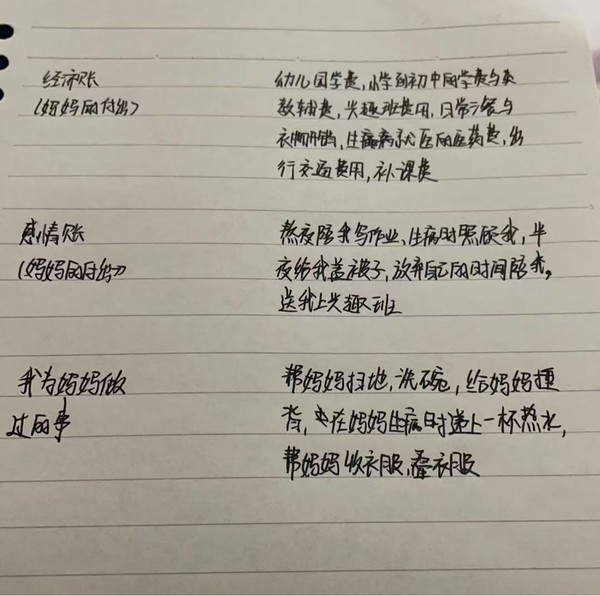 经济账 幼儿园学费,小学到初中的学费与类
(妈妈的付出) 教辅费,兴趣班费用,日常三餐与
衣物开销,生病就医的医药费,出
行交通费用,补课费
感情账 熬夜陪我写作业、生病时照顾我,半
(妈妈的付出) 夜给我盖被子,放弃自己的时间陪我,
送我上兴趣班
我为妈妈做 帮妈妈扫地,洗碗,给妈妈捶
过的事 背,在妈妈生病时递上一杯热水,
帮妈妈收衣服,叠衣服